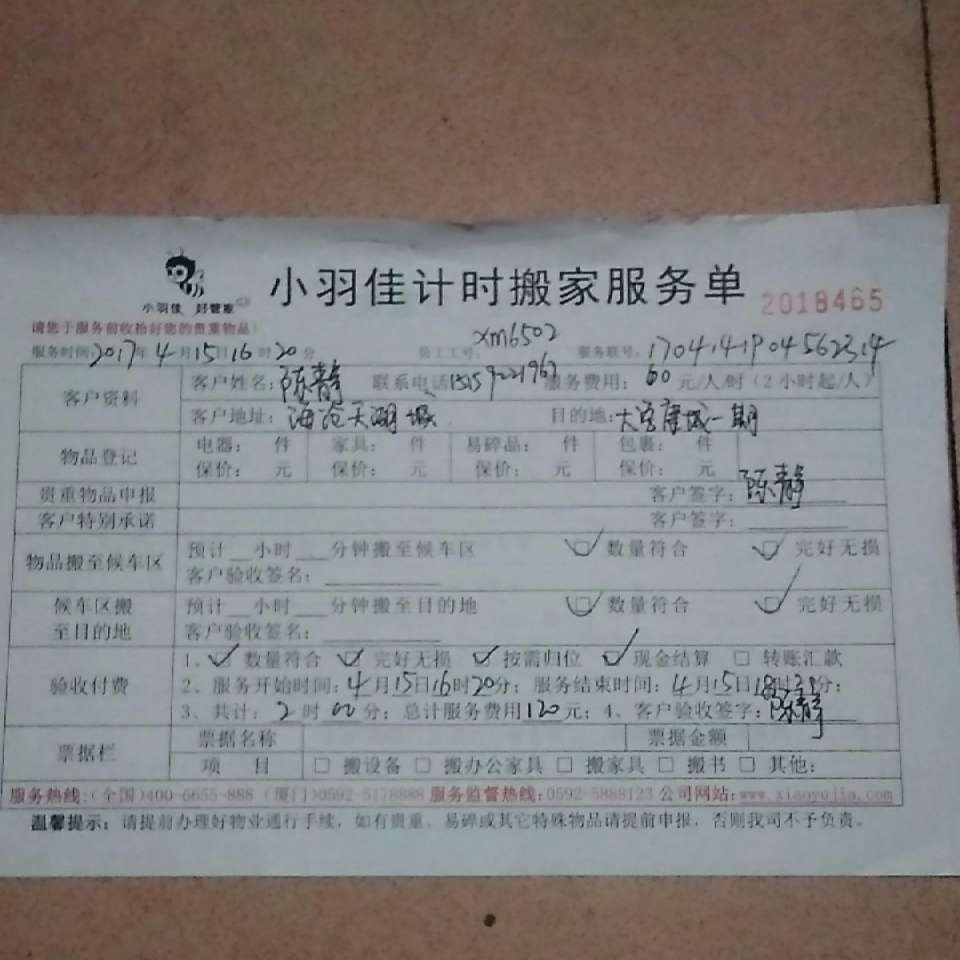 小羽佳 好管家
小羽佳计时搬家服务单 2018465
请您于服务前收拾好您的贵重物品!
服务时间:2017年4月15日16时20分 员工工号: xm6502 服务联号:
客户资料 客户姓名:陈静 联系电话 服务费用:60元/人/时(2小时起/人)
客户地址:海沧天湖城 目的地:
物品登记 电器: 件 家具: 件 易碎品: 件 包裹: 件
保价: 元 保价: 元 保价: 元 保价: 元
贵重物品申报 客户签字:陈静
客户特别承诺 客户签字:
物品搬至候车区 预计__小时___分钟搬至候车区 数量符合 完好无损
客户验收签名:
候车区搬至目的地 预计__小时___分钟搬至目的地 数量符合 完好无损
客户验收签名:
验收付费 1、 数量符合 完好无损 按需归位 现金结算 □ 转账汇款
2、服务开始时间:4月15日16时20分;服务结束时间:4月15日18时 分;
3、共计:2时00分;总计服务费用120元;4、客户验收签字:陈静
票据栏 票据名称 票据金额
项 目 □ 搬设备 □ 搬办公家具 □ 搬家具 □ 搬书 □ 其他:
服务热线:(全国)400-6655-888 (厦门)0592-5178888 服务监督热线:0592-5888123 公司网站:www.xiaoyujia.com
温馨提示:请提前办理好物业通行手续,如有贵重、易碎或其它特殊物品请提前申报,否则我司不予负责。